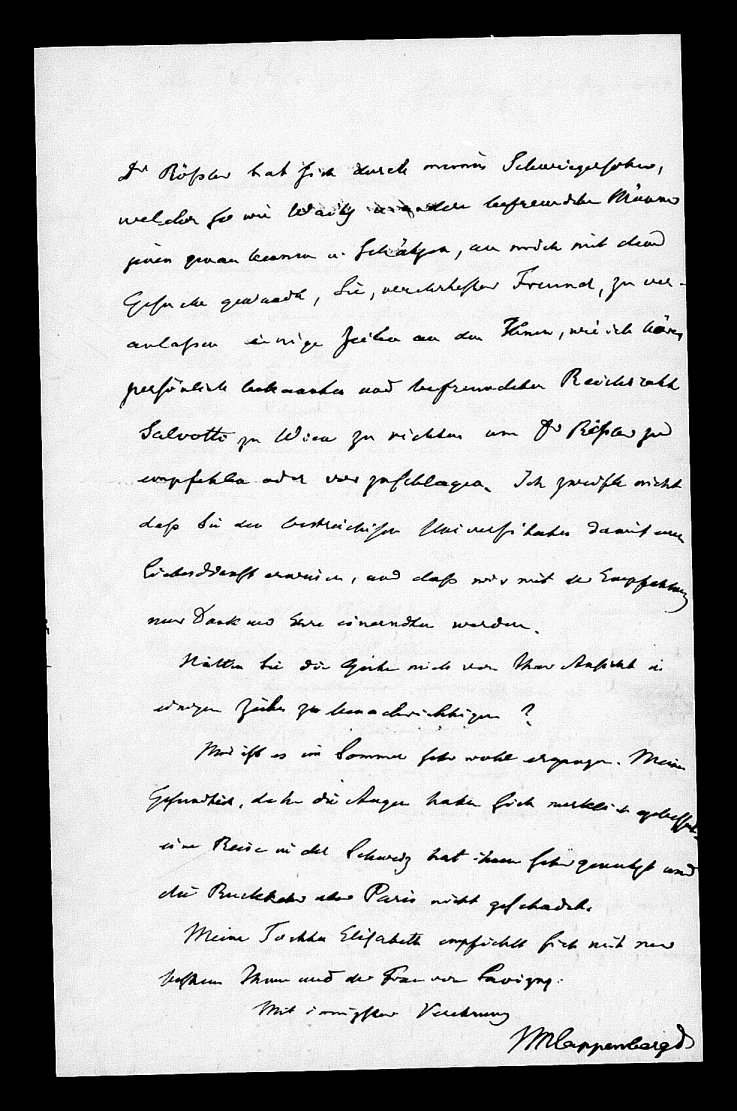 Dr Rößler hat sich durch meinen Schwiegersohn,
welcher so wie Waitz u. andere befreundete Männer
jenen genau kennen u. schätzen, an mich mit dem
Gesuche gewandt, Sie, verehrtester Freund, zu ver-
anlaßen einige Zeilen an den Ihnen, wie ich höre,
persönlich bekannten und befreundeten Reichsrath
Salvotti zu Wien zu richten um Dr Rößler zu
empfehlen oder vorzuschlagen. Ich zweifle nicht
daß Sie den oestreichischen Universitaeten damit einen
Liebesdienst erweisen, und daß wir mit der Empfehlung
nur Dank und Ehre einerndten werden.
Hätten Sie die Güte mich von Ihrer Ansicht in
einigen Zeilen zu benachrichtigen?
Mir ist es im Sommer sehr wohl ergangen. Meine
Gesundheit, die Augen haben sich merklich gebessert,
eine Reise in der Schweiz hat ihnen sehr genutzt und
die Rückkehr über Paris nicht geschadet.
Meine Tochter Elisabeth empfiehlt sich mit mir
bestens Ihnen und der Frau von Savigny.
Mit innigster Verehrung
JMLappenberg Dr